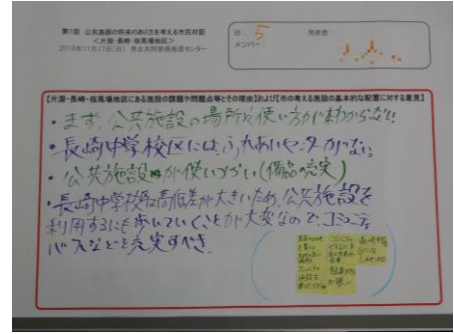 第1回 公共施設の将来のあり方を考える市民対話
<片淵・長崎・桜馬場地区>
2019年11月17日(日) 男女共同参画推進センター
班: 5
発表者:
メンバー:
【片淵・長崎・桜馬場地区にある施設の課題や問題点等とその理由】および【市の考える施設の基本的な配置に対する意見】
・まず、公共施設の場所や使い方が素わからない!
・長崎中学校区には、ふれあいセンターがない。
・公共施設が使いづらい(備品の充実)
・長崎中学校区は高低差が大きいため、公共施設を
利用するにも歩いていくことが大変なので、コミュニティ
バスなどを充実すべき。